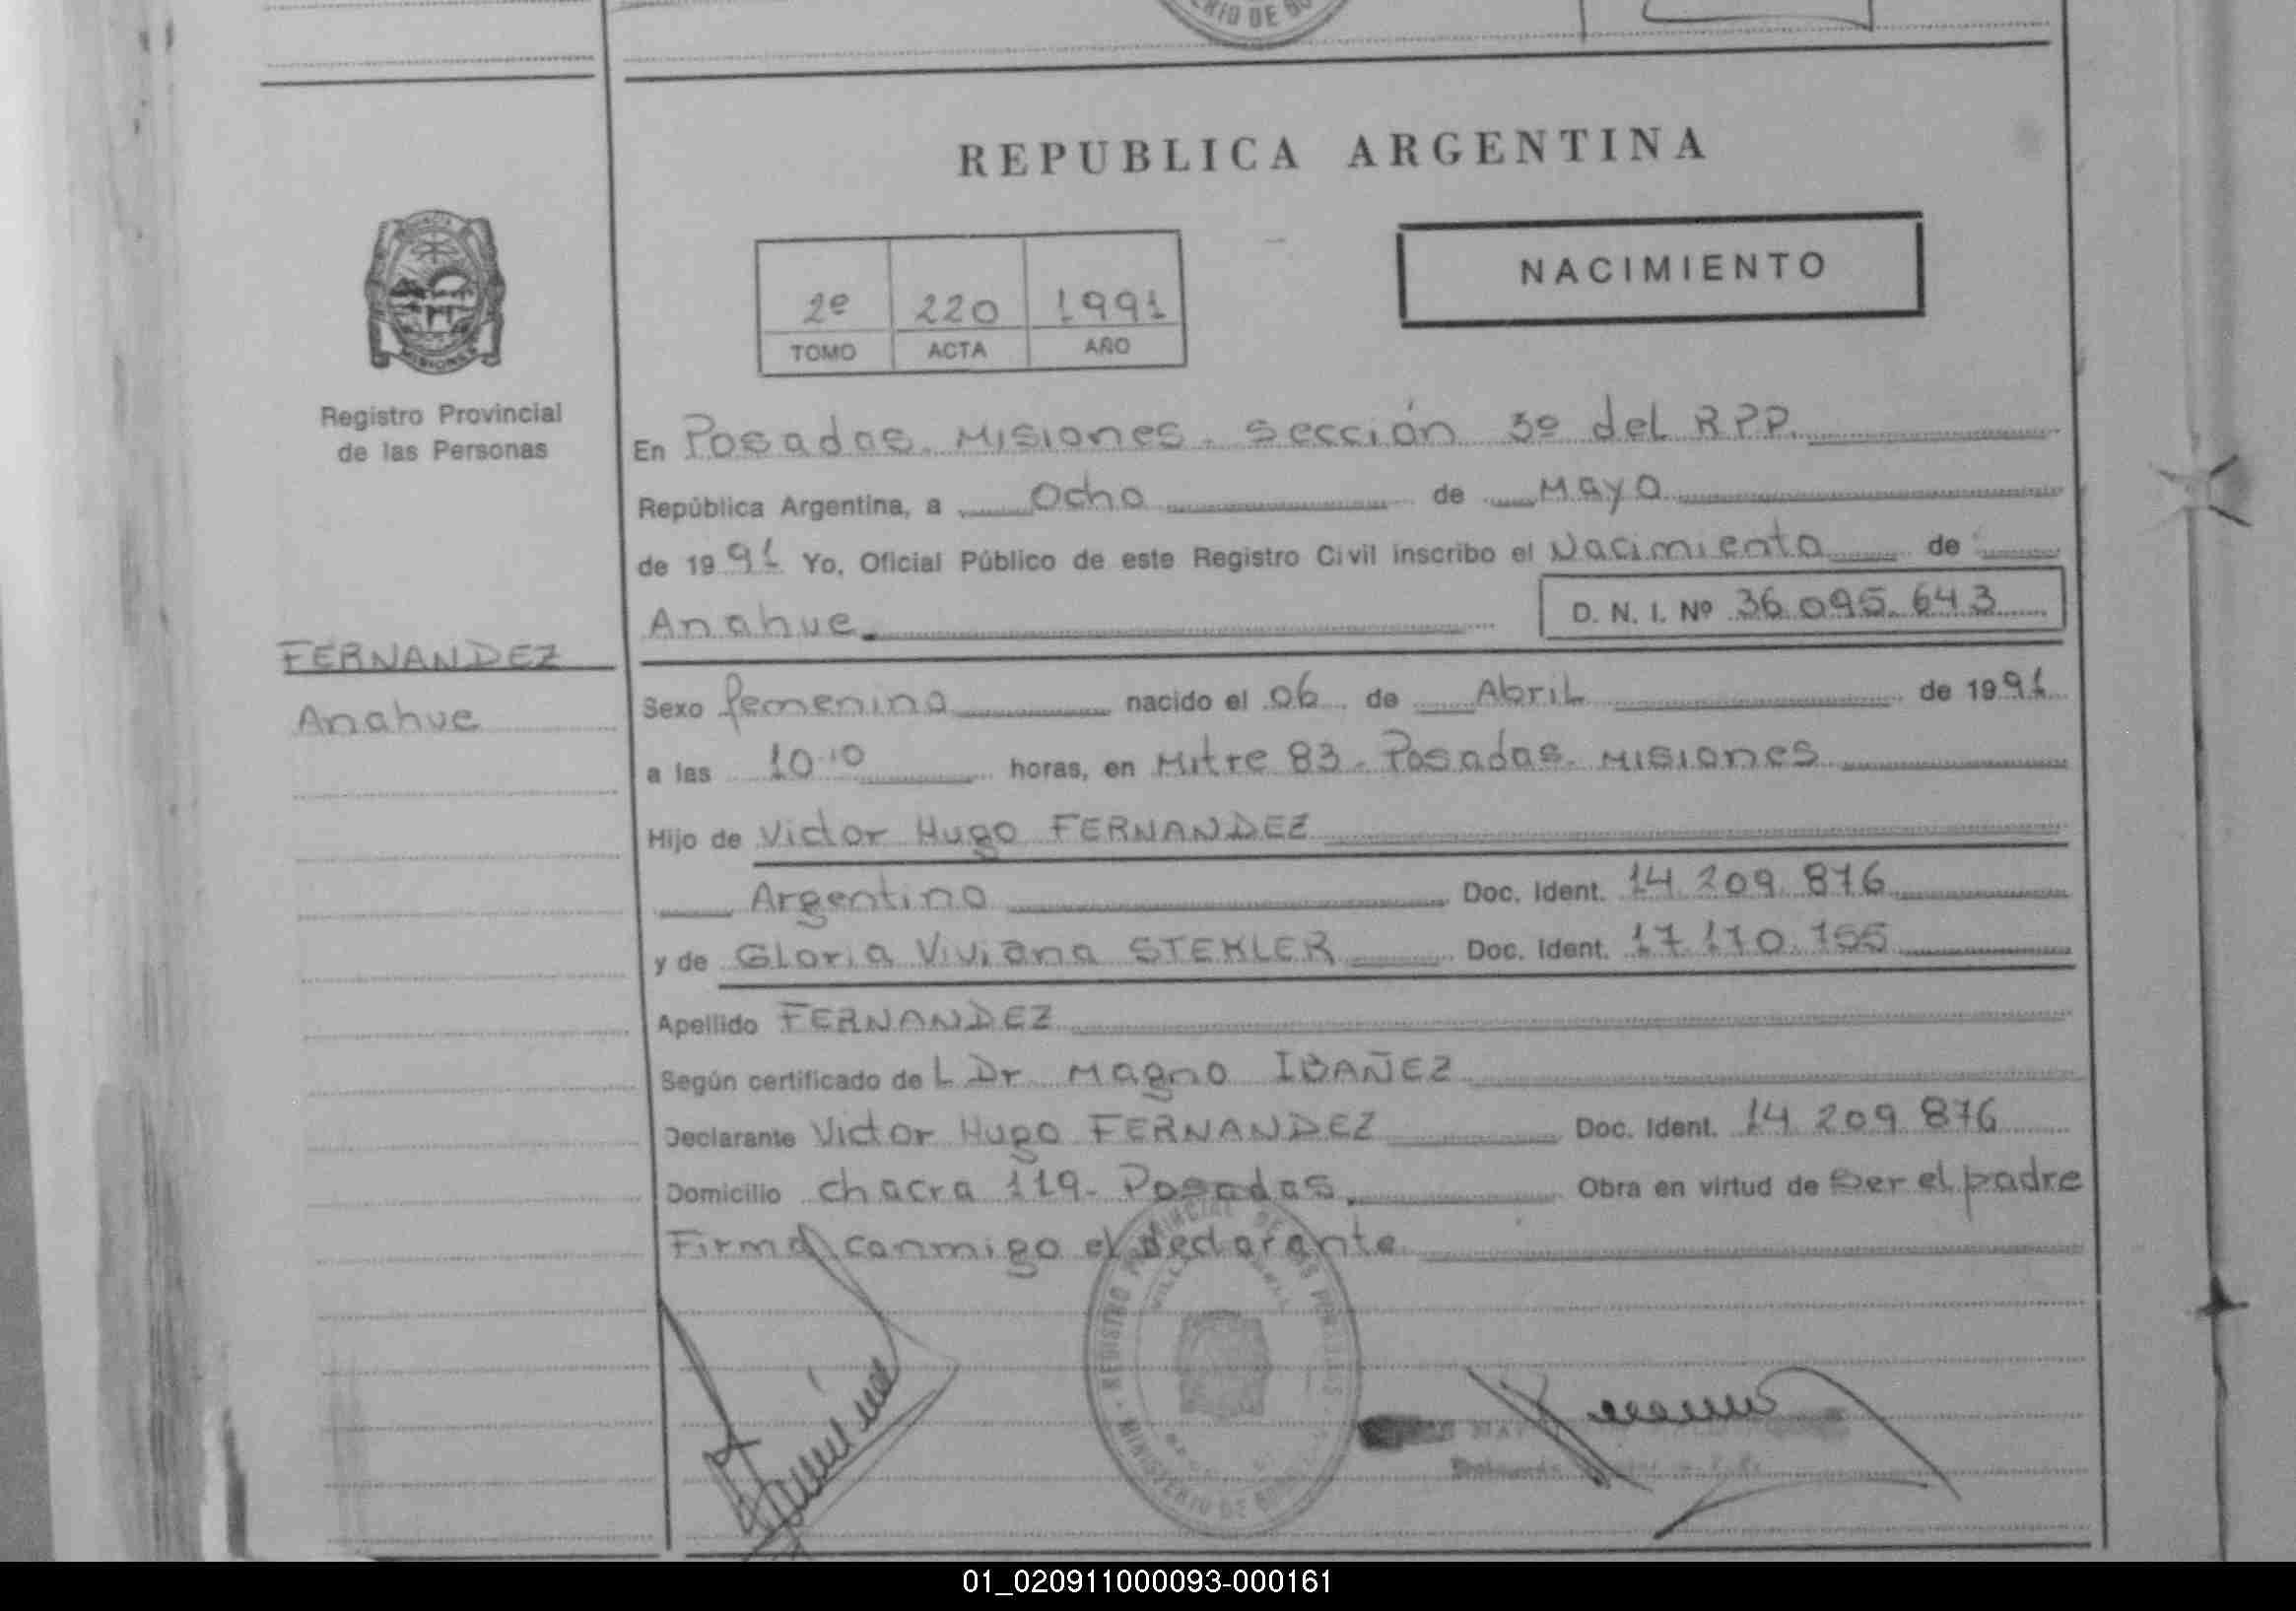 ERIO DE BO
REPUBLICA ARGENTINA
NACIMIENTO
2º 220 1991
TOMO ACTA AÑO
MISIONES
Registro Provincial
de las Personas
En Posadas. Misiones. Sección 3º del RPP.
República Argentina, a Ocho de Mayo
de 1991 Yo, Oficial Público de este Registro Civil inscribo el Nacimiento de
Anahue. D. N. I. Nº 36.095.643
FERNANDEZ
Anahue
Sexo femenino nacido el 06 de Abril de 1991
a las 10:10 horas, en Mitre 83. Posadas. Misiones
Hijo de Victor Hugo FERNANDEZ
Argentino Doc. Ident. 14.209.876
y de Gloria Viviana STEKLER Doc. Ident. 17.110.155
Apellido FERNANDEZ
Según certificado del Dr Magno IBAÑEZ
Declarante Victor Hugo FERNANDEZ Doc. Ident. 14.209.876
Domicilio chacra 119- Posadas. Obra en virtud de ser el padre
Firma conmigo el declarante
REGISTRO PROVINCIAL DE LAS PERSONAS
MINISTERIO DE
01_020911000093-000161